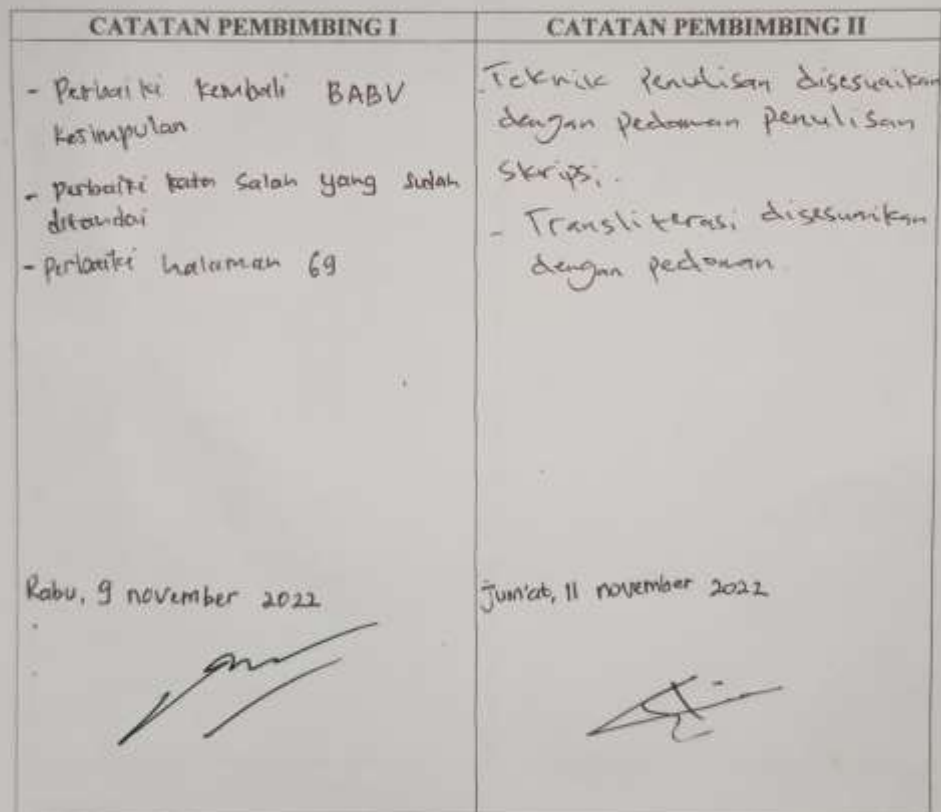 CATATAN PEMBIMBING I
- Perbaiki kembali BAB V
kesimpulan
- perbaiki kata salah yang sudah
ditandai
- perbaiki halaman 69
Rabu, 9 november 2022
CATATAN PEMBIMBING II
- Teknik Penulisan disesuaikan
dengan pedoman penulisan
skripsi.
- Transliterasi disesuaikan
dengan pedoman
Jum'at, 11 november 2022